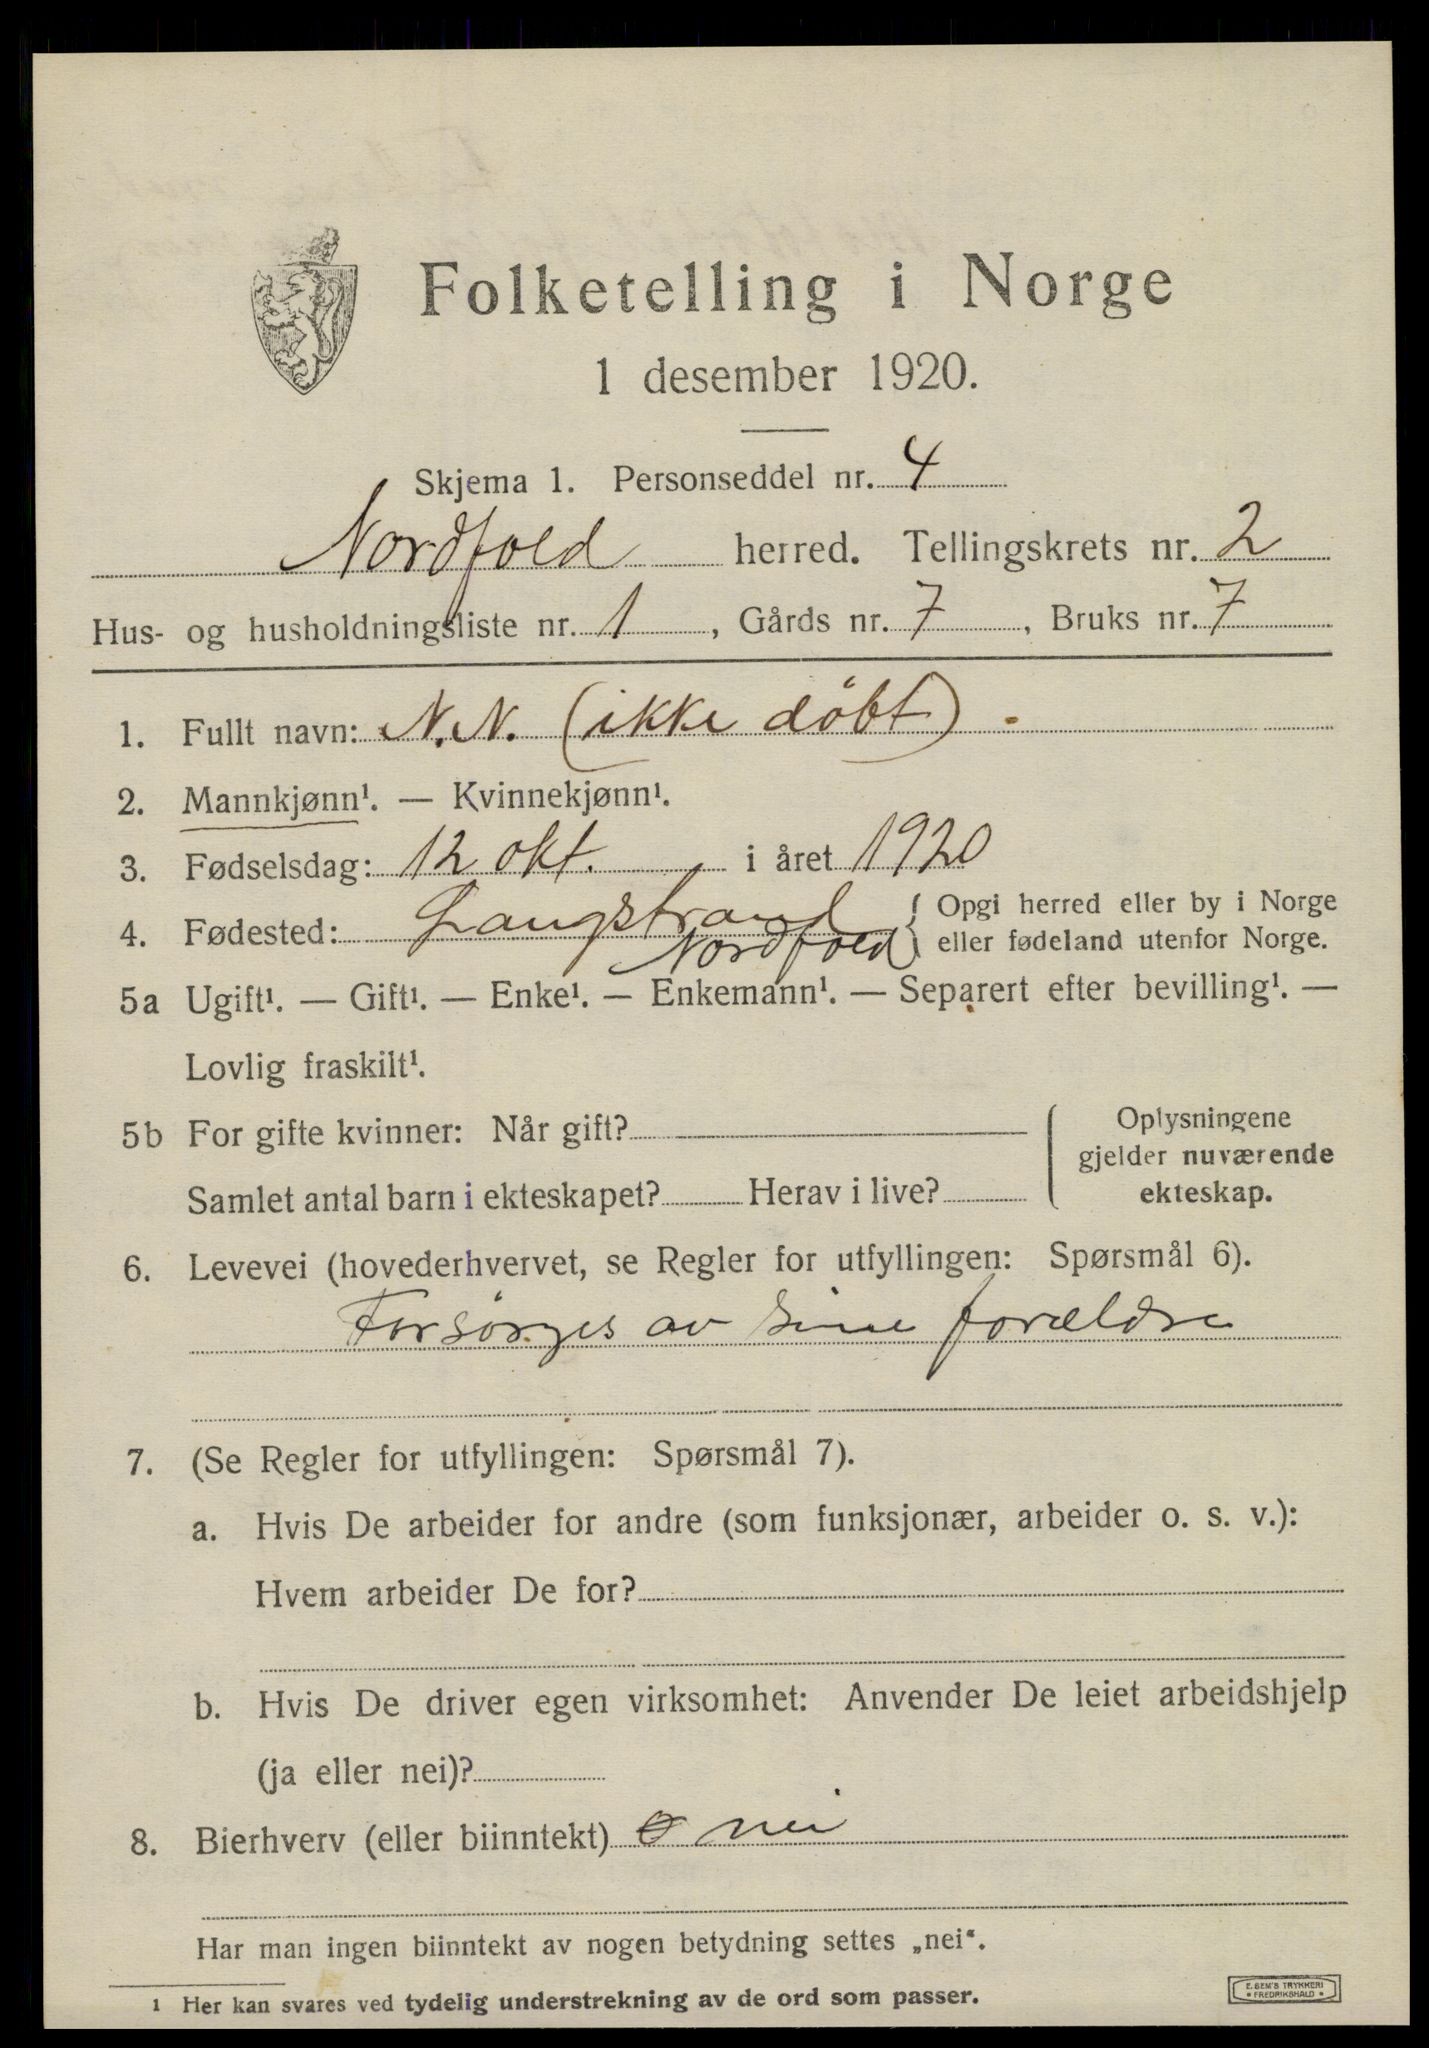 Folketelling i Norge
1 desember 1920.
Skjema 1. Personseddel nr. 4
Nordfold herred. Tellingskrets nr. 2
Hus- og husholdningsliste nr. 1, Gårds nr. 7, Bruks nr. 7
1. Fullt navn: N.N. (ikke döbt).
2. Mannkjønn¹. — Kvinnekjønn¹.
3. Fødselsdag: 12 okt. i året 1920
4. Fødested: Langstrand { Opgi herred eller by i Norge
Nordfold eller fødeland utenfor Norge.
5a Ugift¹. — Gift¹. — Enke¹. — Enkemann¹. — Separert efter bevilling¹. —
Lovlig fraskilt¹.
5b For gifte kvinner: Når gift?
Samlet antal barn i ekteskapet? Herav i live?
Oplysningene
gjelder nuværende
ekteskap.
6. Levevei (hovederhvervet, se Regler for utfyllingen: Spørsmål 6).
Forsörges av sine forældre
7. (Se Regler for utfyllingen: Spørsmål 7).
a. Hvis De arbeider for andre (som funksjonær, arbeider o. s. v.):
Hvem arbeider De for?
b. Hvis De driver egen virksomhet: Anvender De leiet arbeidshjelp
(ja eller nei)?
8. Bierhverv (eller biinntekt) nei
Har man ingen biinntekt av nogen betydning settes „nei“.
1 Her kan svares ved tydelig understrekning av de ord som passer.
E. SEM'S TRYKKERI
• FREDRIKSHALD •